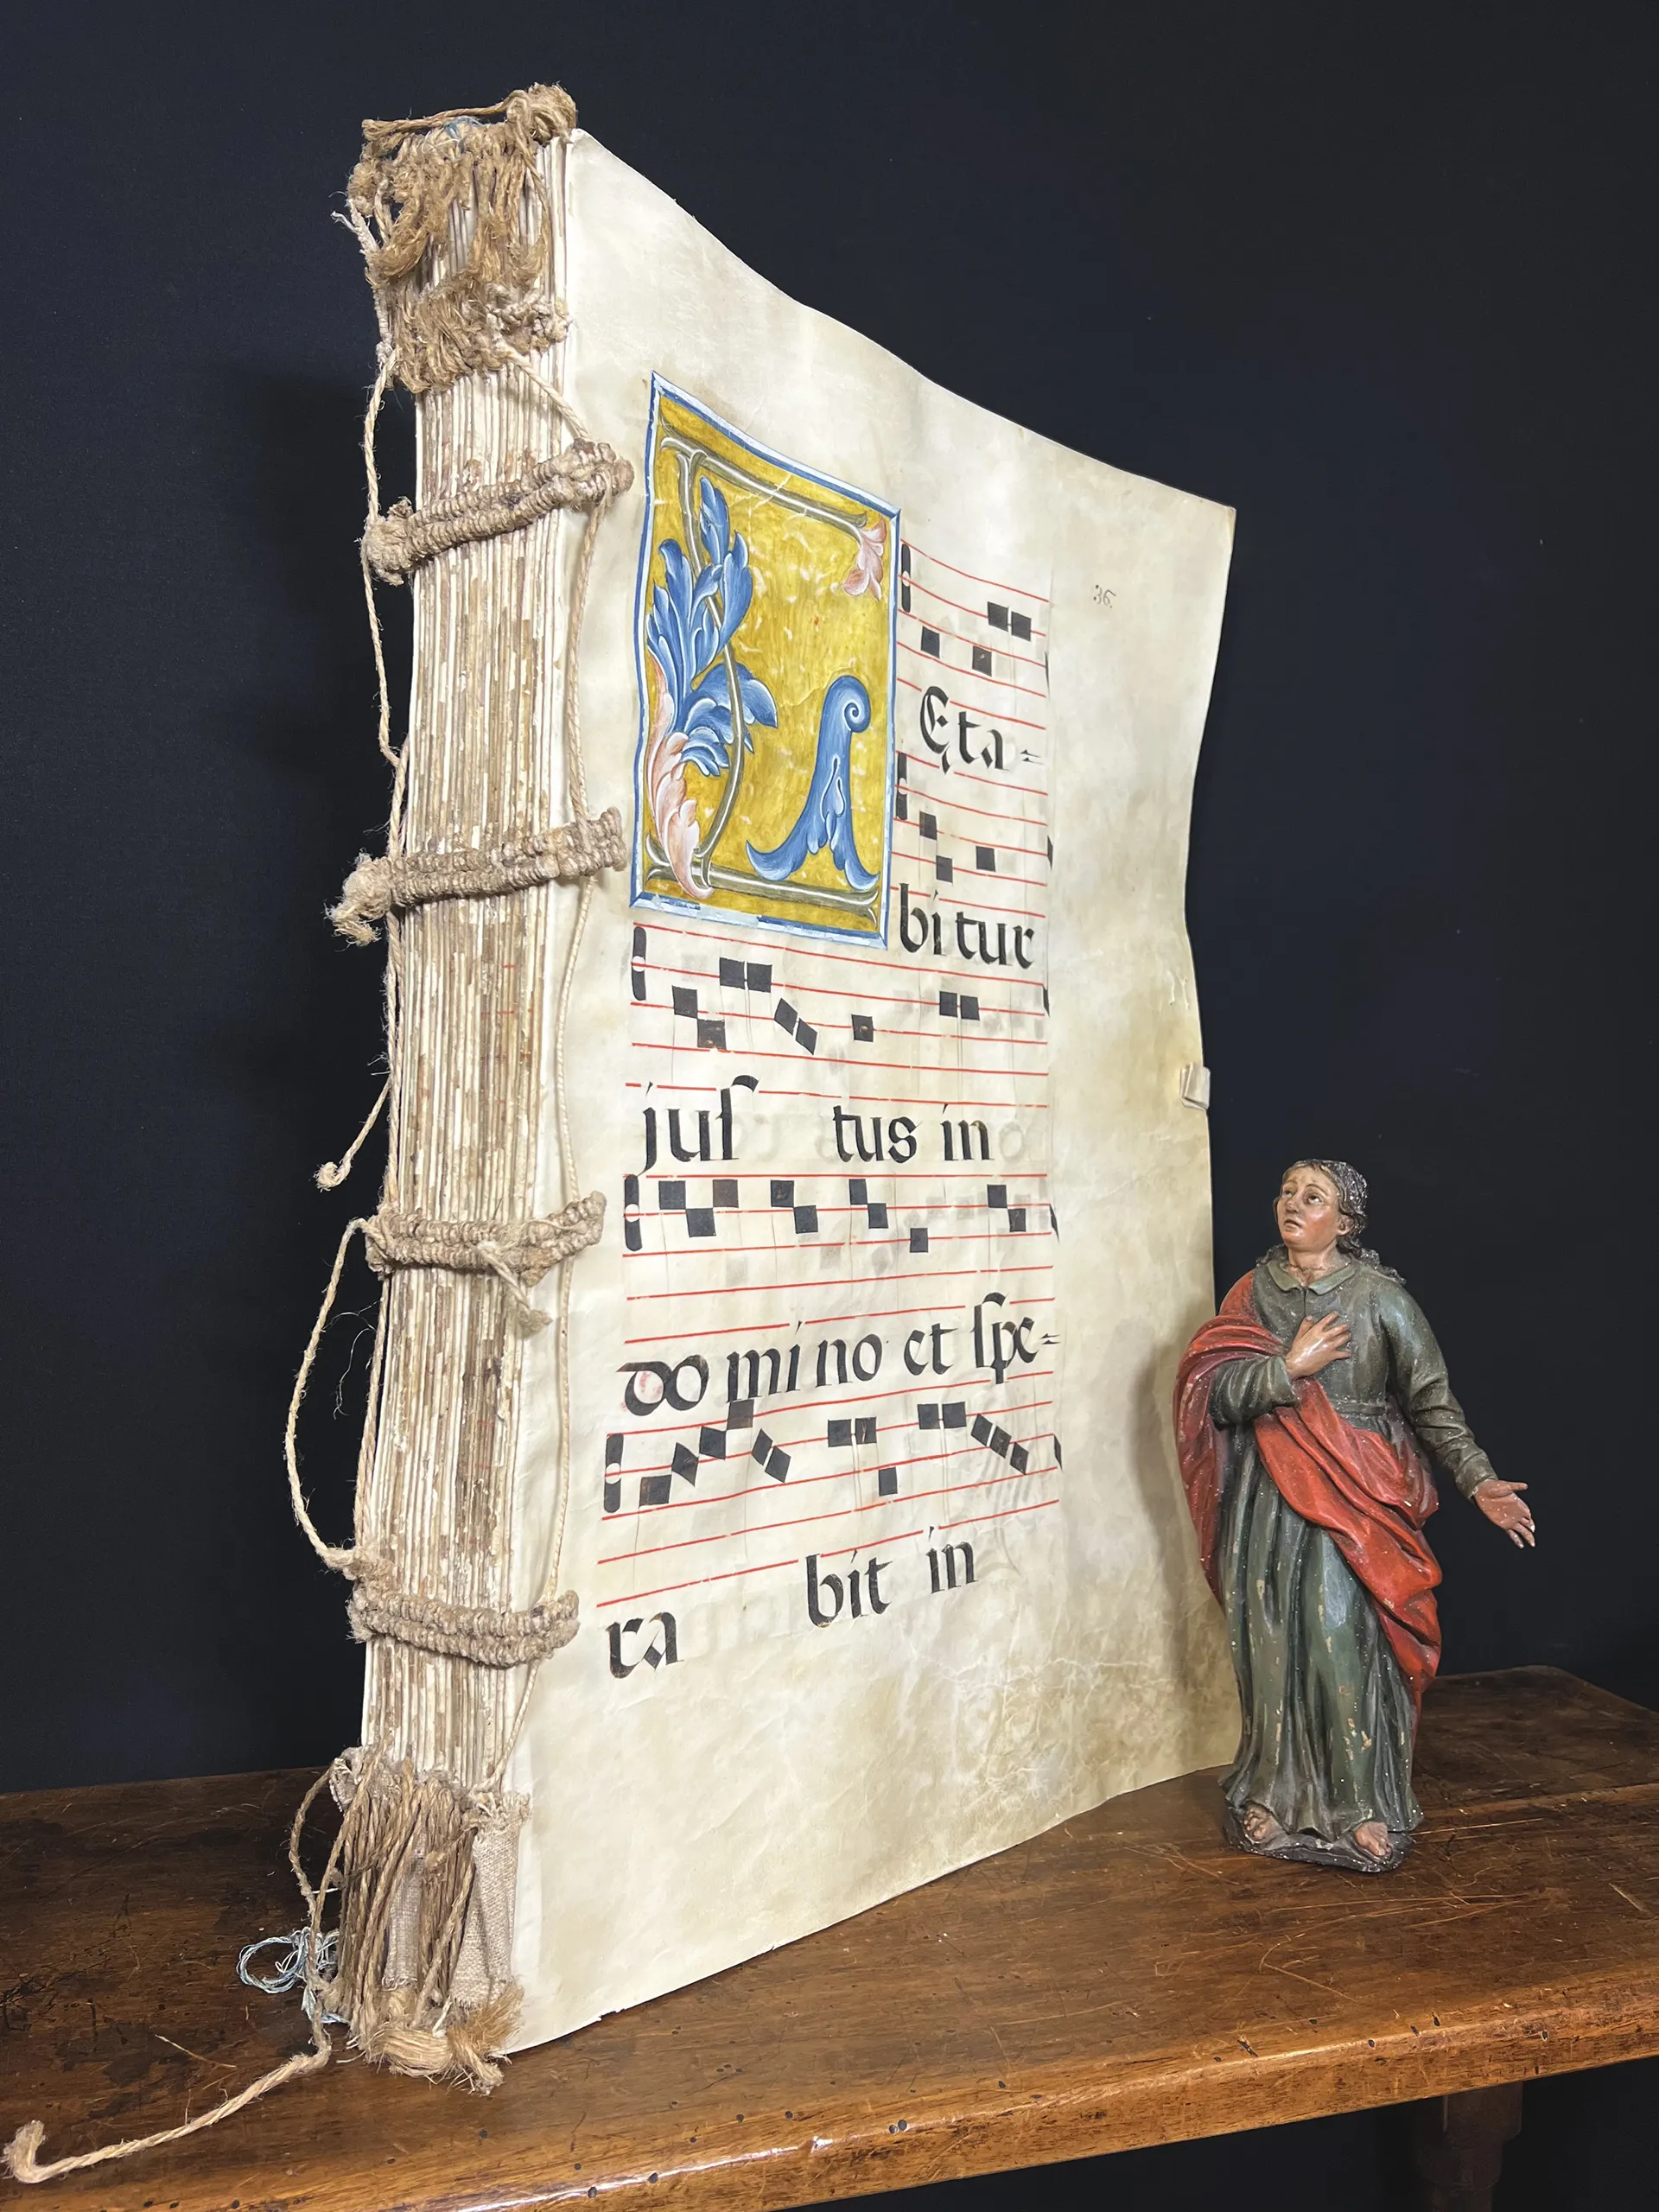 36.
LEta-
bitur
juſ tus in
do mi no et ſpe-
ra bit in